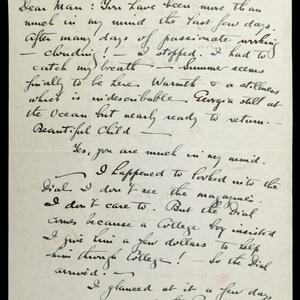 Dear Man: You have been more than
much in my mind the last few days.
After many days of passionate working
— clouding! — I stopped. I had to
catch my breath — Summer seems
finally to be here. Warmth & a stillness
which is indescribable. Georgia still at
the Ocean but nearly ready to return. —
Beautiful Child —
Yes, you are much in my mind.
— I happened to looked into the
Dial. I don't see the magazines.
I don't care to. But the Dial
comes because a College boy insisted
I give him a few dollars to help
him through College! — So the Dial
arrived. —
I glanced at it a few days